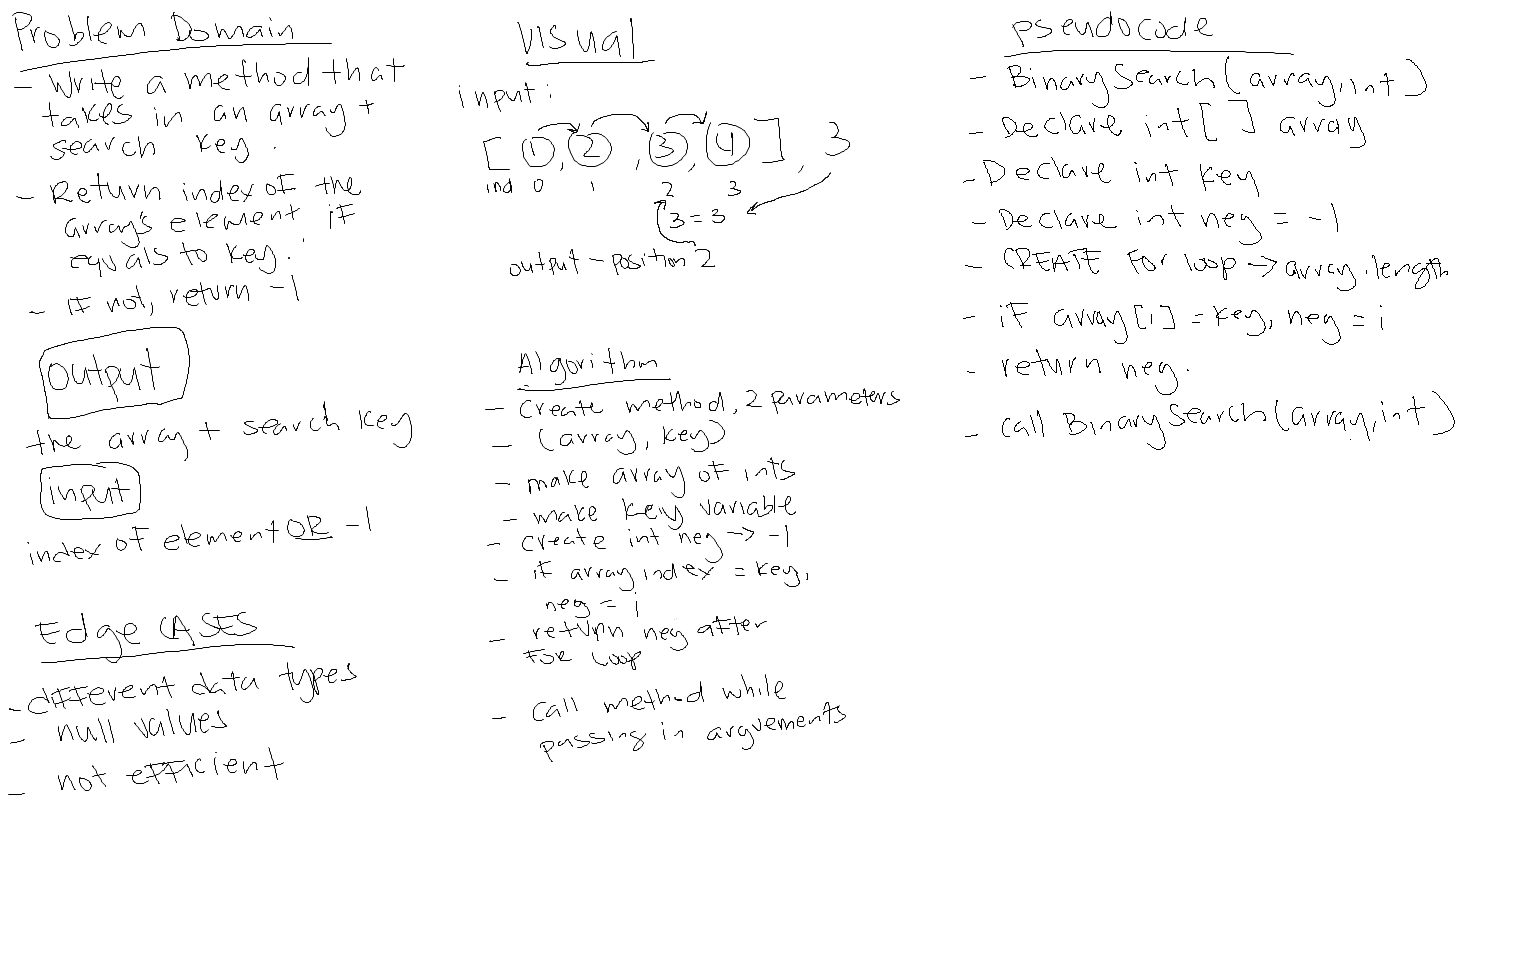 Problem Domain
- Write a method that
takes in an array +
search key.
- Return index of the
array's element if
equals to key.
- If not, return -1
output
the array + search key
input
index of element OR -1
Edge CASES
- different data types
- null values
- not efficient
Visual
input:
[1, 2, 3, 4], 3
ind 0 1 2 3
3 = 3
output - position 2
Algorithm
- create method, 2 parameters
- (array, key)
- make array of ints
- make key variable
- create int neg -> -1
- if array index = key,
neg = i
- return neg after
for loop
- call method while
passing in arguements
pseudocode
- BinarySearch(array, int)
- Declare int[] array
- Declare int key
- Declare int neg = -1
- CREATE for loop -> array.length
- if array[i] = key, neg = i
- return neg.
- call BinarySearch(array, int)